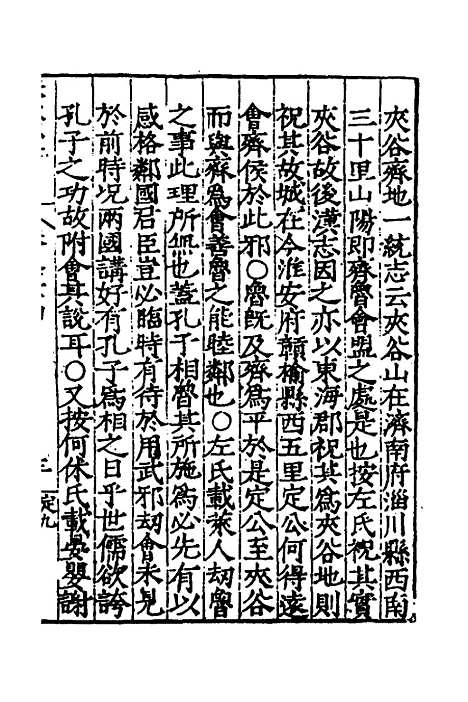 夾谷齊地一統志云夾谷山在濟南府淄川縣西南
三十里山陽即齊魯會盟之處是也按左氏祝其實
夾谷故後漢志因之亦以東海郡祝其為夾谷地則
祝其故城在今淮安府贑榆縣西五里定公何得遠
會齊侯於此邪〇魯旣及齊為平於是定公至夾谷
而與齊為會善魯之能睦鄰也〇左氏載萊人刼魯
之事此理所無也蓋孔子相魯其所施為必先有以
感格鄰國君臣豈必臨時有待於用武邪刼會未見
於前時况兩國講好有孔子為相之日乎世儒欲誇
孔子之功故附會其說耳〇又按何休氏載晏嬰謝
三
定九